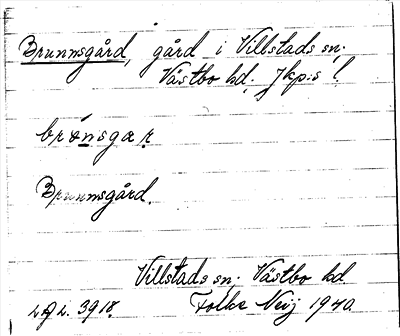 Brunnsgård, gård i Villstads sn.
Västbo hd. Jkp:s l.
Brunnsgård.
Villstads sn. Västbo hd.
Folke Neij 1940.